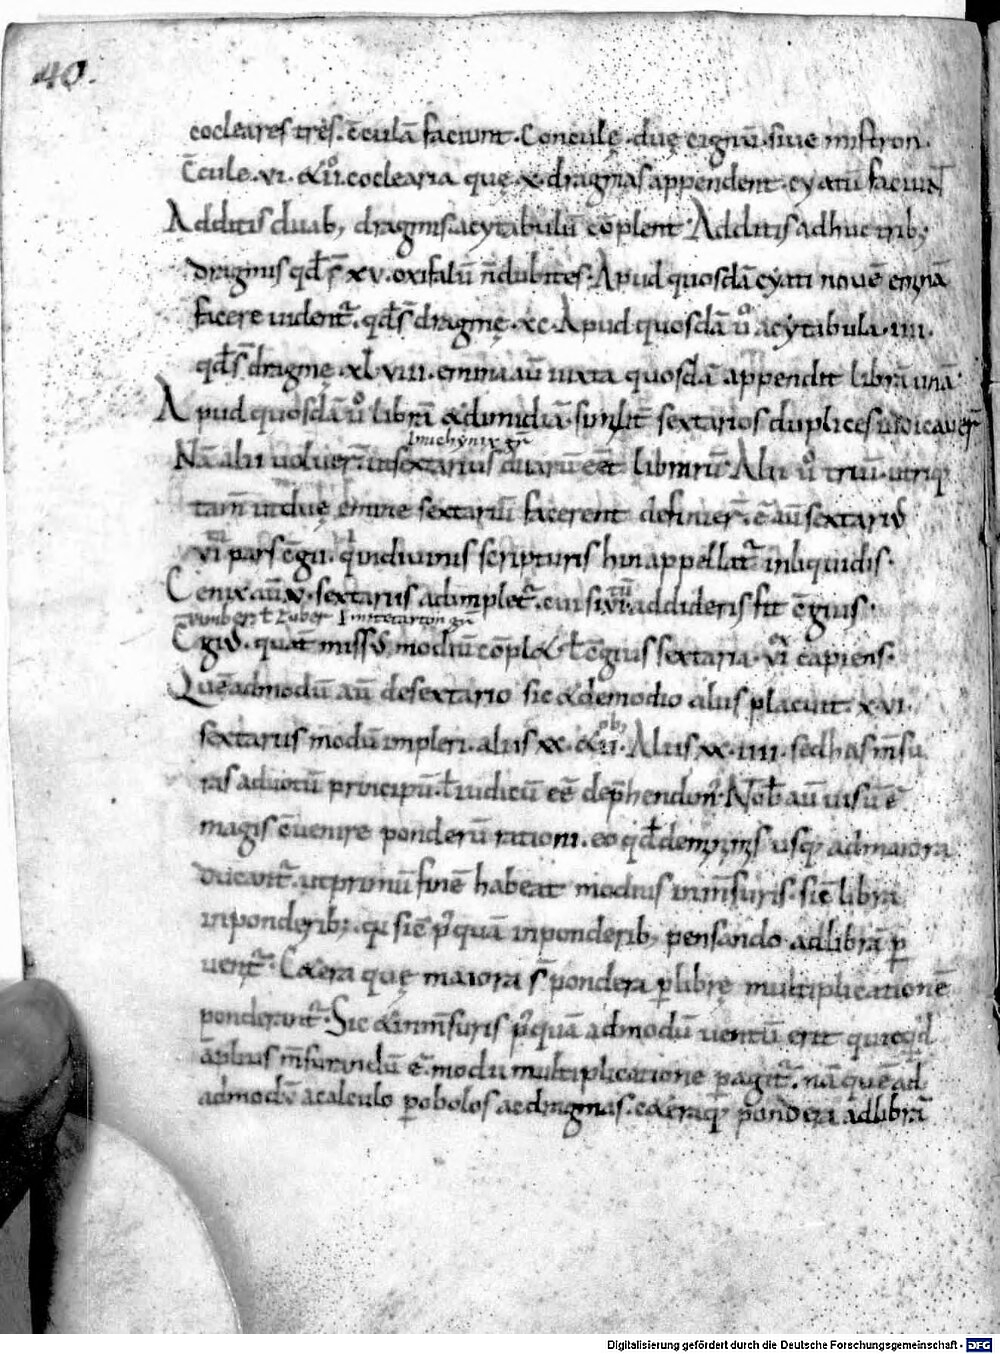 40.
cocleares tres. c̄culā faciunt. Concule. duę cignū. siue mistron.
C̄cule. vi. & ii. coclearia quę x. dragmas appendent. cyatū faciunt
Additis duab; dragmis. acytabulū cōplent. Additis adhuc trib;
dragmis qd̄ s̄ xv. oxifalū n̄ dubites. Apud quosdā cyati nouē eminā
facere uident̄. qd̄ s̄ dragmę. xc. Apud quosdā ū acytabula. iiii.
qd̄ s̄ dragmę. xlviii. emina aū iuxta quosdā appendit librā unā.
Apud quosdā ū librā & dimidiā. similit̄ sextarios duplices iudicauer̄
Imichynix gr̄
Nā alii uoluer̄. ut sextarius duarū eēt librarū. Alii ū triū. utriq;
tam̄ ut duę emine sextariū facerent definier̄. ē aū sextariꝰ
vi pars c̄gii. qui diuinis scripturis hin appellat̄ in liquidis.
Cenix aū v. sextariis adimplet̄. cui si vi. addideris fit c̄gius.
Imitetarton gr̄
C̄giꝰ. quat̄ missꝰ modiū cōpl&. ł c̄gius sextaria. vi capiens.
Quēadmodū aū de sextario sic & de modio aliis placuit. xvi.
sextariis modiū impleri. aliis xx. & ii. Aliis xx. iiii. sed has m̄su
ras ad uotū principū. ł iudicū eē dep̄hendor̄. Nob̄ aū uisū ē
magis c̄uenire ponderū rationi. eo qd̄ de minimis usq; ad maiora
ducant̄. ut primū finē habeat modius in m̄suris. sic̄ libra
in ponderib;. qui sic̄ p̄quā in ponderib; pensando ad librā p
uent̄. C&era quę maiora s̄ pondera p librę multiplicationē
ponderant̄. Sic & in m̄suris p̄quā ad modiū uentū erit quicqd̄
āplius m̄surandū ē. modii multiplicatione pagit̄. nā quēad
admod̄ a calculo p obolos ac dragmas. c&eraq; pondera ad librā
Digitalisierung gefördert durch die Deutsche Forschungsgemeinschaft - DFG